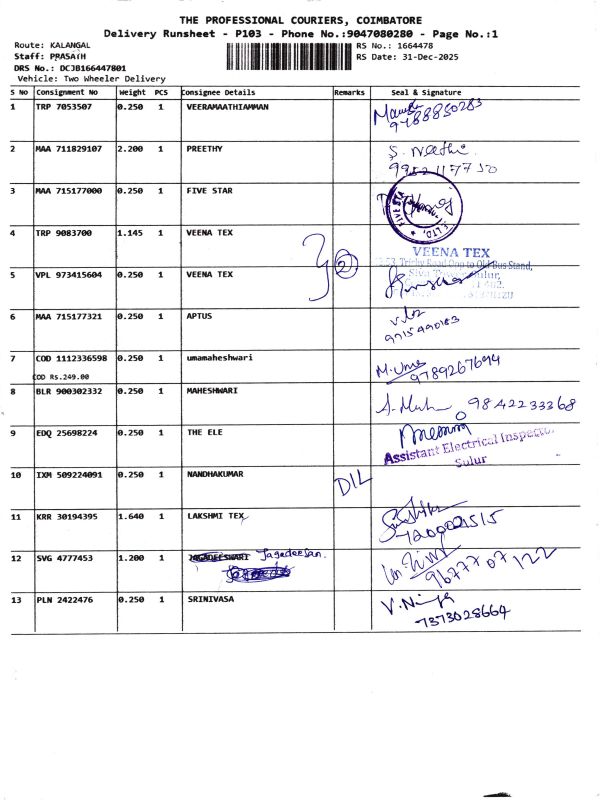 THE PROFESSIONAL COURIERS, COIMBATORE
Delivery Runsheet - P103 - Phone No.:9047080280 - Page No.:1
Route: KALANGAL RS No.: 1664478
Staff: PRASATH RS Date: 31-Dec-2025
DRS No.: DCJB166447801
Vehicle: Two Wheeler Delivery
S No Consignment No Weight PCS Consignee Details Remarks Seal & Signature
1 TRP 7053507 0.250 1 VEERAMAATHIAMMAN
9788850283
2 MAA 711829107 2.200 1 PREETHY S. Neethi
9952117750
3 MAA 715177000 0.250 1 FIVE STAR
4 TRP 9083700 1.145 1 VEENA TEX
2
VEENA TEX
Trichy Road Opp to Old Bus Stand,
5 VPL 973415604 0.250 1 VEENA TEX
Sulur,
6 MAA 715177321 0.250 1 APTUS
9715490183
7 COD 1112336598 0.250 1 umamaheshwari M. Uma
COD Rs.249.00 9789267694
8 BLR 900302332 0.250 1 MAHESHWARI 9842233368
9 EDQ 25698224 0.250 1 THE ELE
Assistant Electrical Inspector
Sulur
10 IXM 509224091 0.250 1 NANDHAKUMAR D/L
11 KRR 30194395 1.640 1 LAKSHMI TEX
12 SVG 4777453 1.200 1 JAGADEESWARI Jagadeesan.
9677707122
13 PLN 2422476 0.250 1 SRINIVASA
7373028664